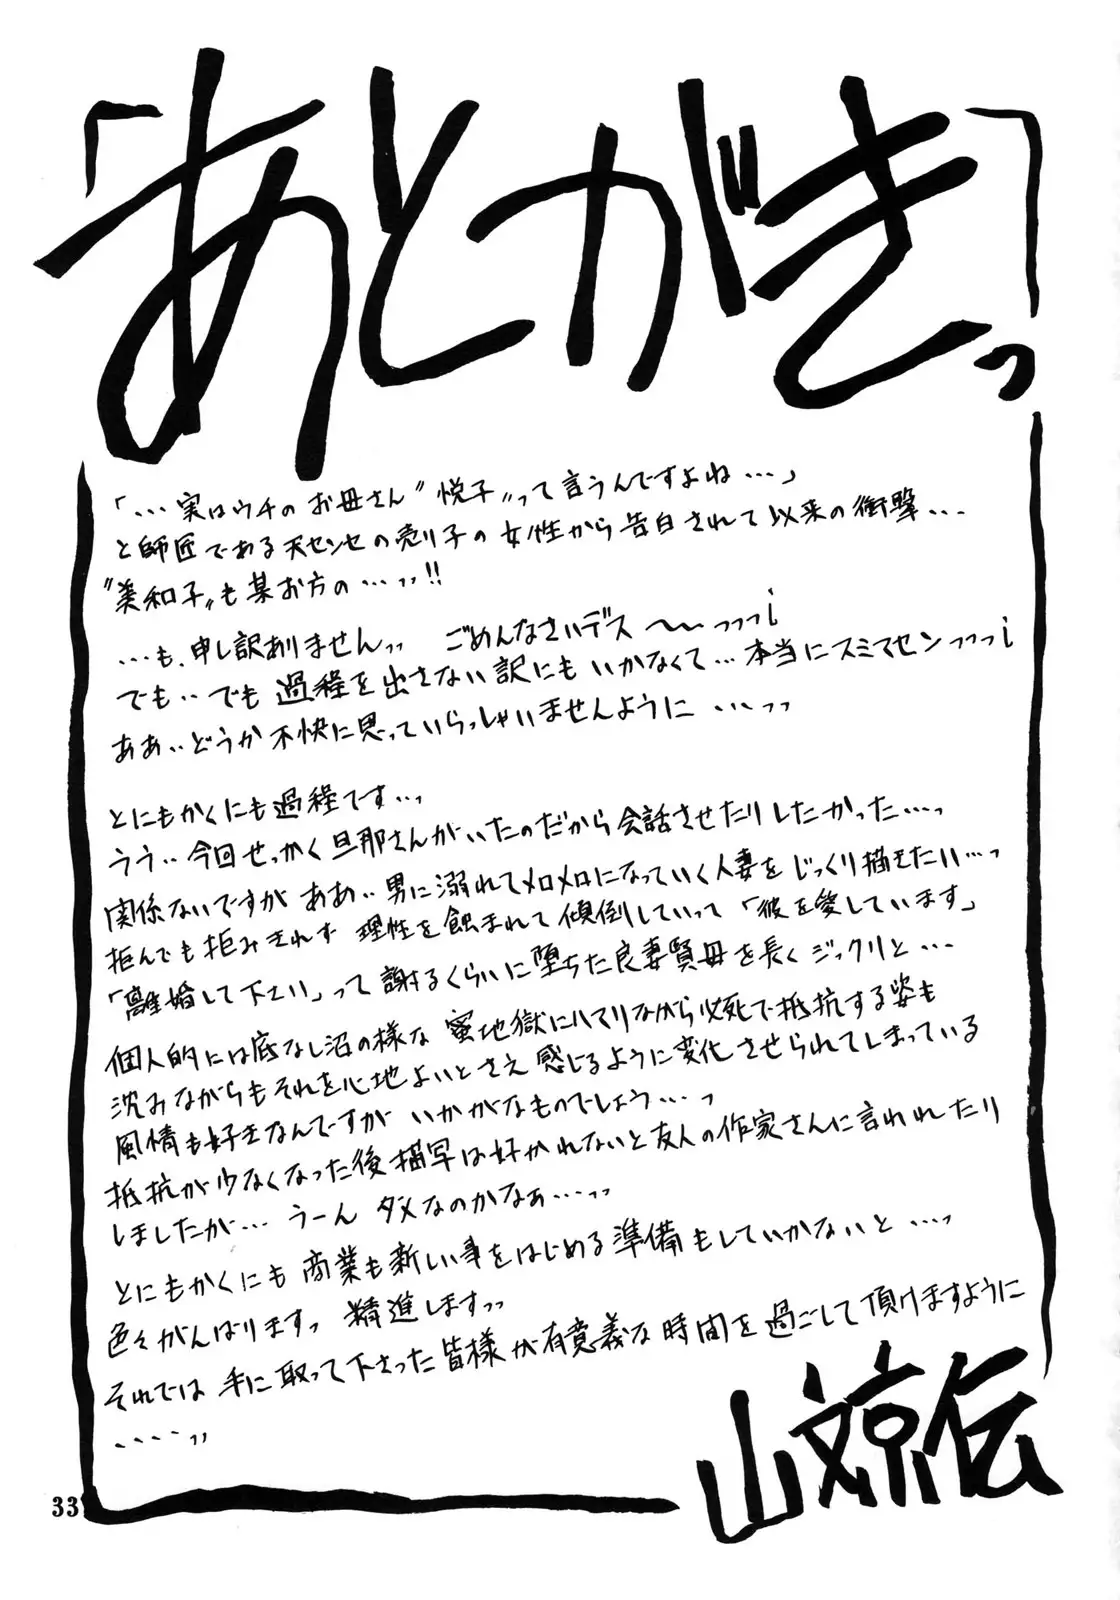 「あとがきっ」
「・・・実はウチのお母さん〝悦子〟って言うんですよね・・・」
と師匠である天センセの売り子の女性から告白されて以来の衝撃・・・
〝美和子〟も某お方の・・・ッッ!!
・・・も、申し訳ありませんッッ ごめんなさいデス〜〜ッッッi
でも・・でも過程を出さない訳にもいかなくて・・・本当にスミマセンッッッi
ああ・・どうか不快に思っていらっしゃいませんように・・・ッッ
とにもかくにも過程です・・・ッ
うう・・今回せっかく旦那さんがいたのだから会話させたりしたかった・・・ッ
関係ないですがああ・・男に溺れてメロメロになっていく人妻をじっくり描きたい・・・ッ
拒んでも拒みきれず理性を蝕まれて傾倒していって「彼を愛しています」
「離婚して下さい」って謝るくらいに堕ちた良妻賢母を長くジックリと・・・
個人的には底なし沼の様な蜜地獄にハマリながら必死で抵抗する姿も
沈みながらもそれを心地よいとさえ感じるように変化させられてしまっている
風情も好きなんですがいかがなものでしょう・・・ッ
抵抗が少なくなった後描写は好かれないと友人の作家さんに言われたり
しましたが・・・うーんダメなのかなぁ・・・ッッ
とにもかくにも商業も新しい事をはじめる準備もしていかないと・・・ッ
色々がんばりますッ 精進しますッッ
それでは手に取って下さった皆様が有意義な時間を過ごして頂けますように
・・・・ッッ
山文京伝
33